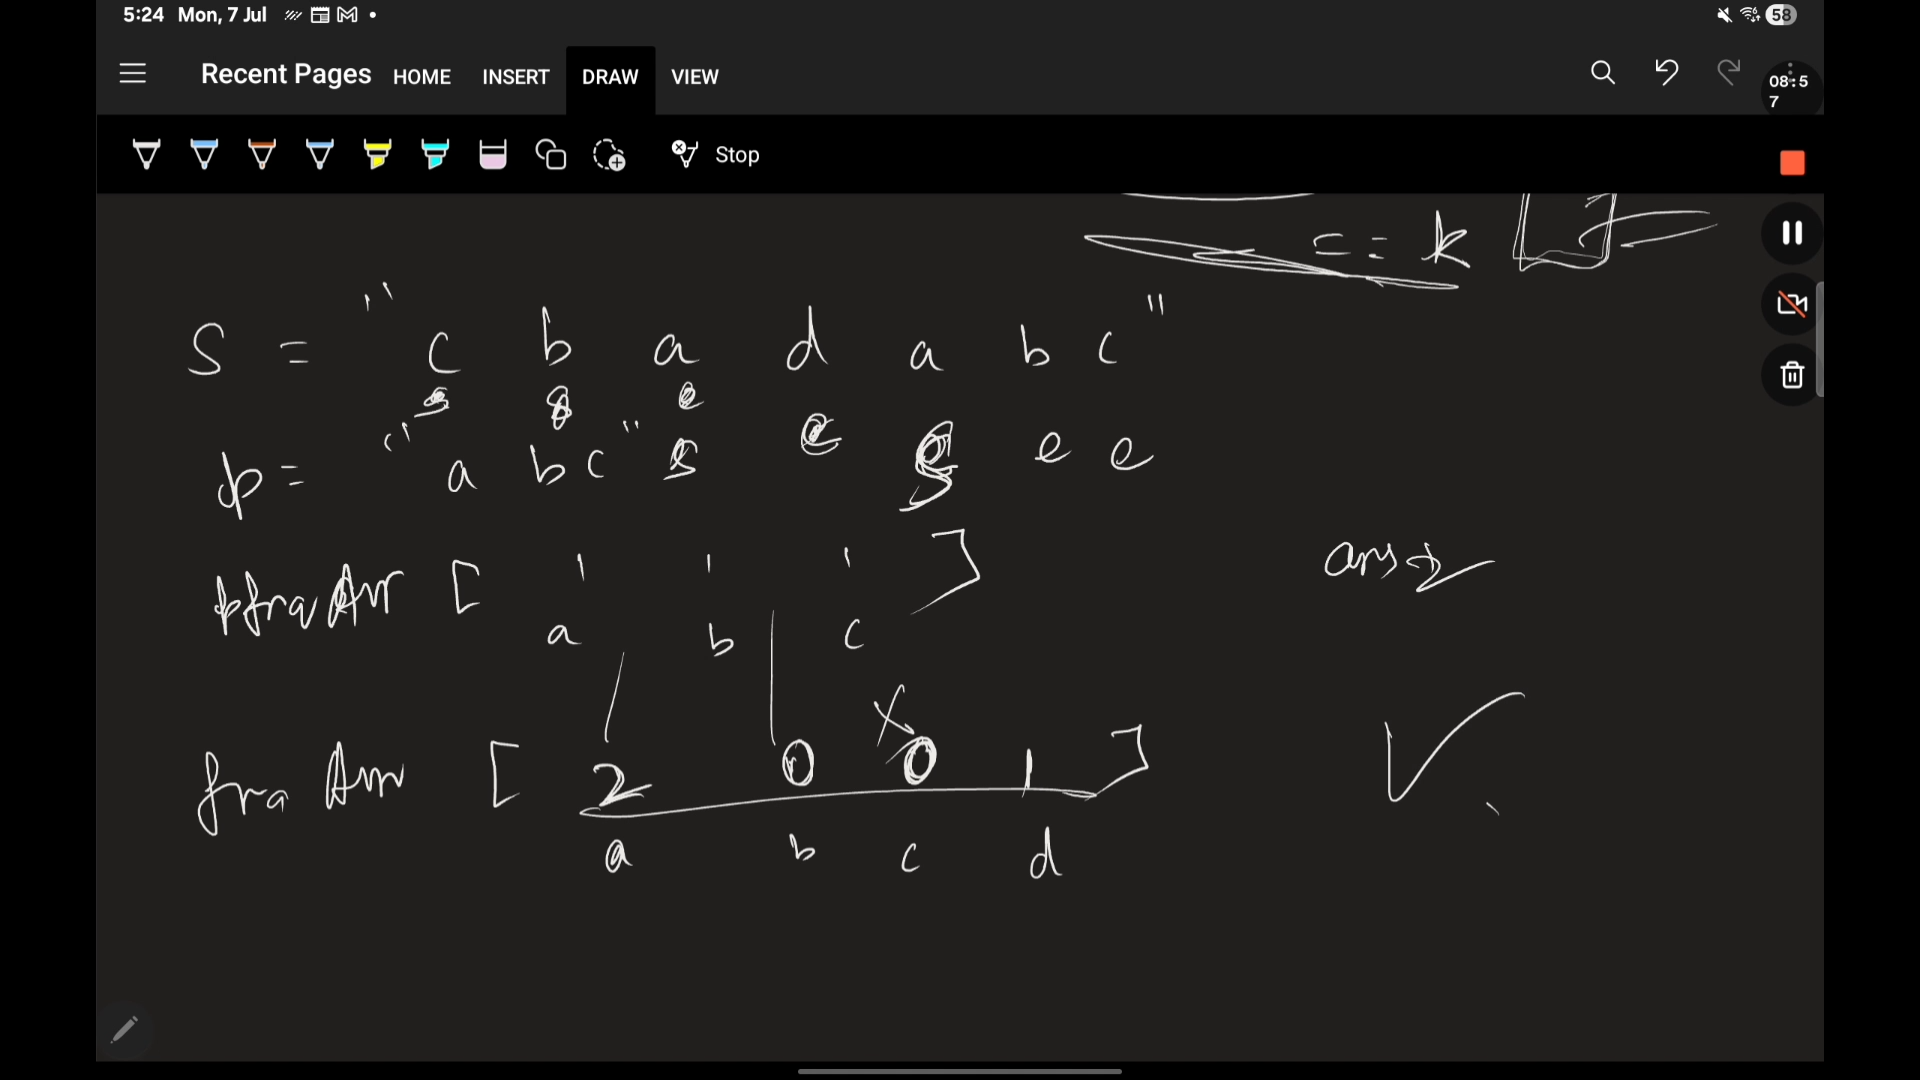 5:24 Mon, 7 Jul 58
Recent Pages HOME INSERT DRAW VIEW
08:57
Stop
= = k
S = "c b a d a b c"
s s e
p = "a b c" s e s e e
pfrqArr [ 1 1 1 ]
a b c
ans
frq Arr [ 2 0 0 1 ]
a b c d